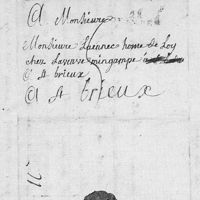 @ Monsieure
Monsieure Laennec home de Loy
chez Laveuve mingampe
@ St brieux
@ St brieux